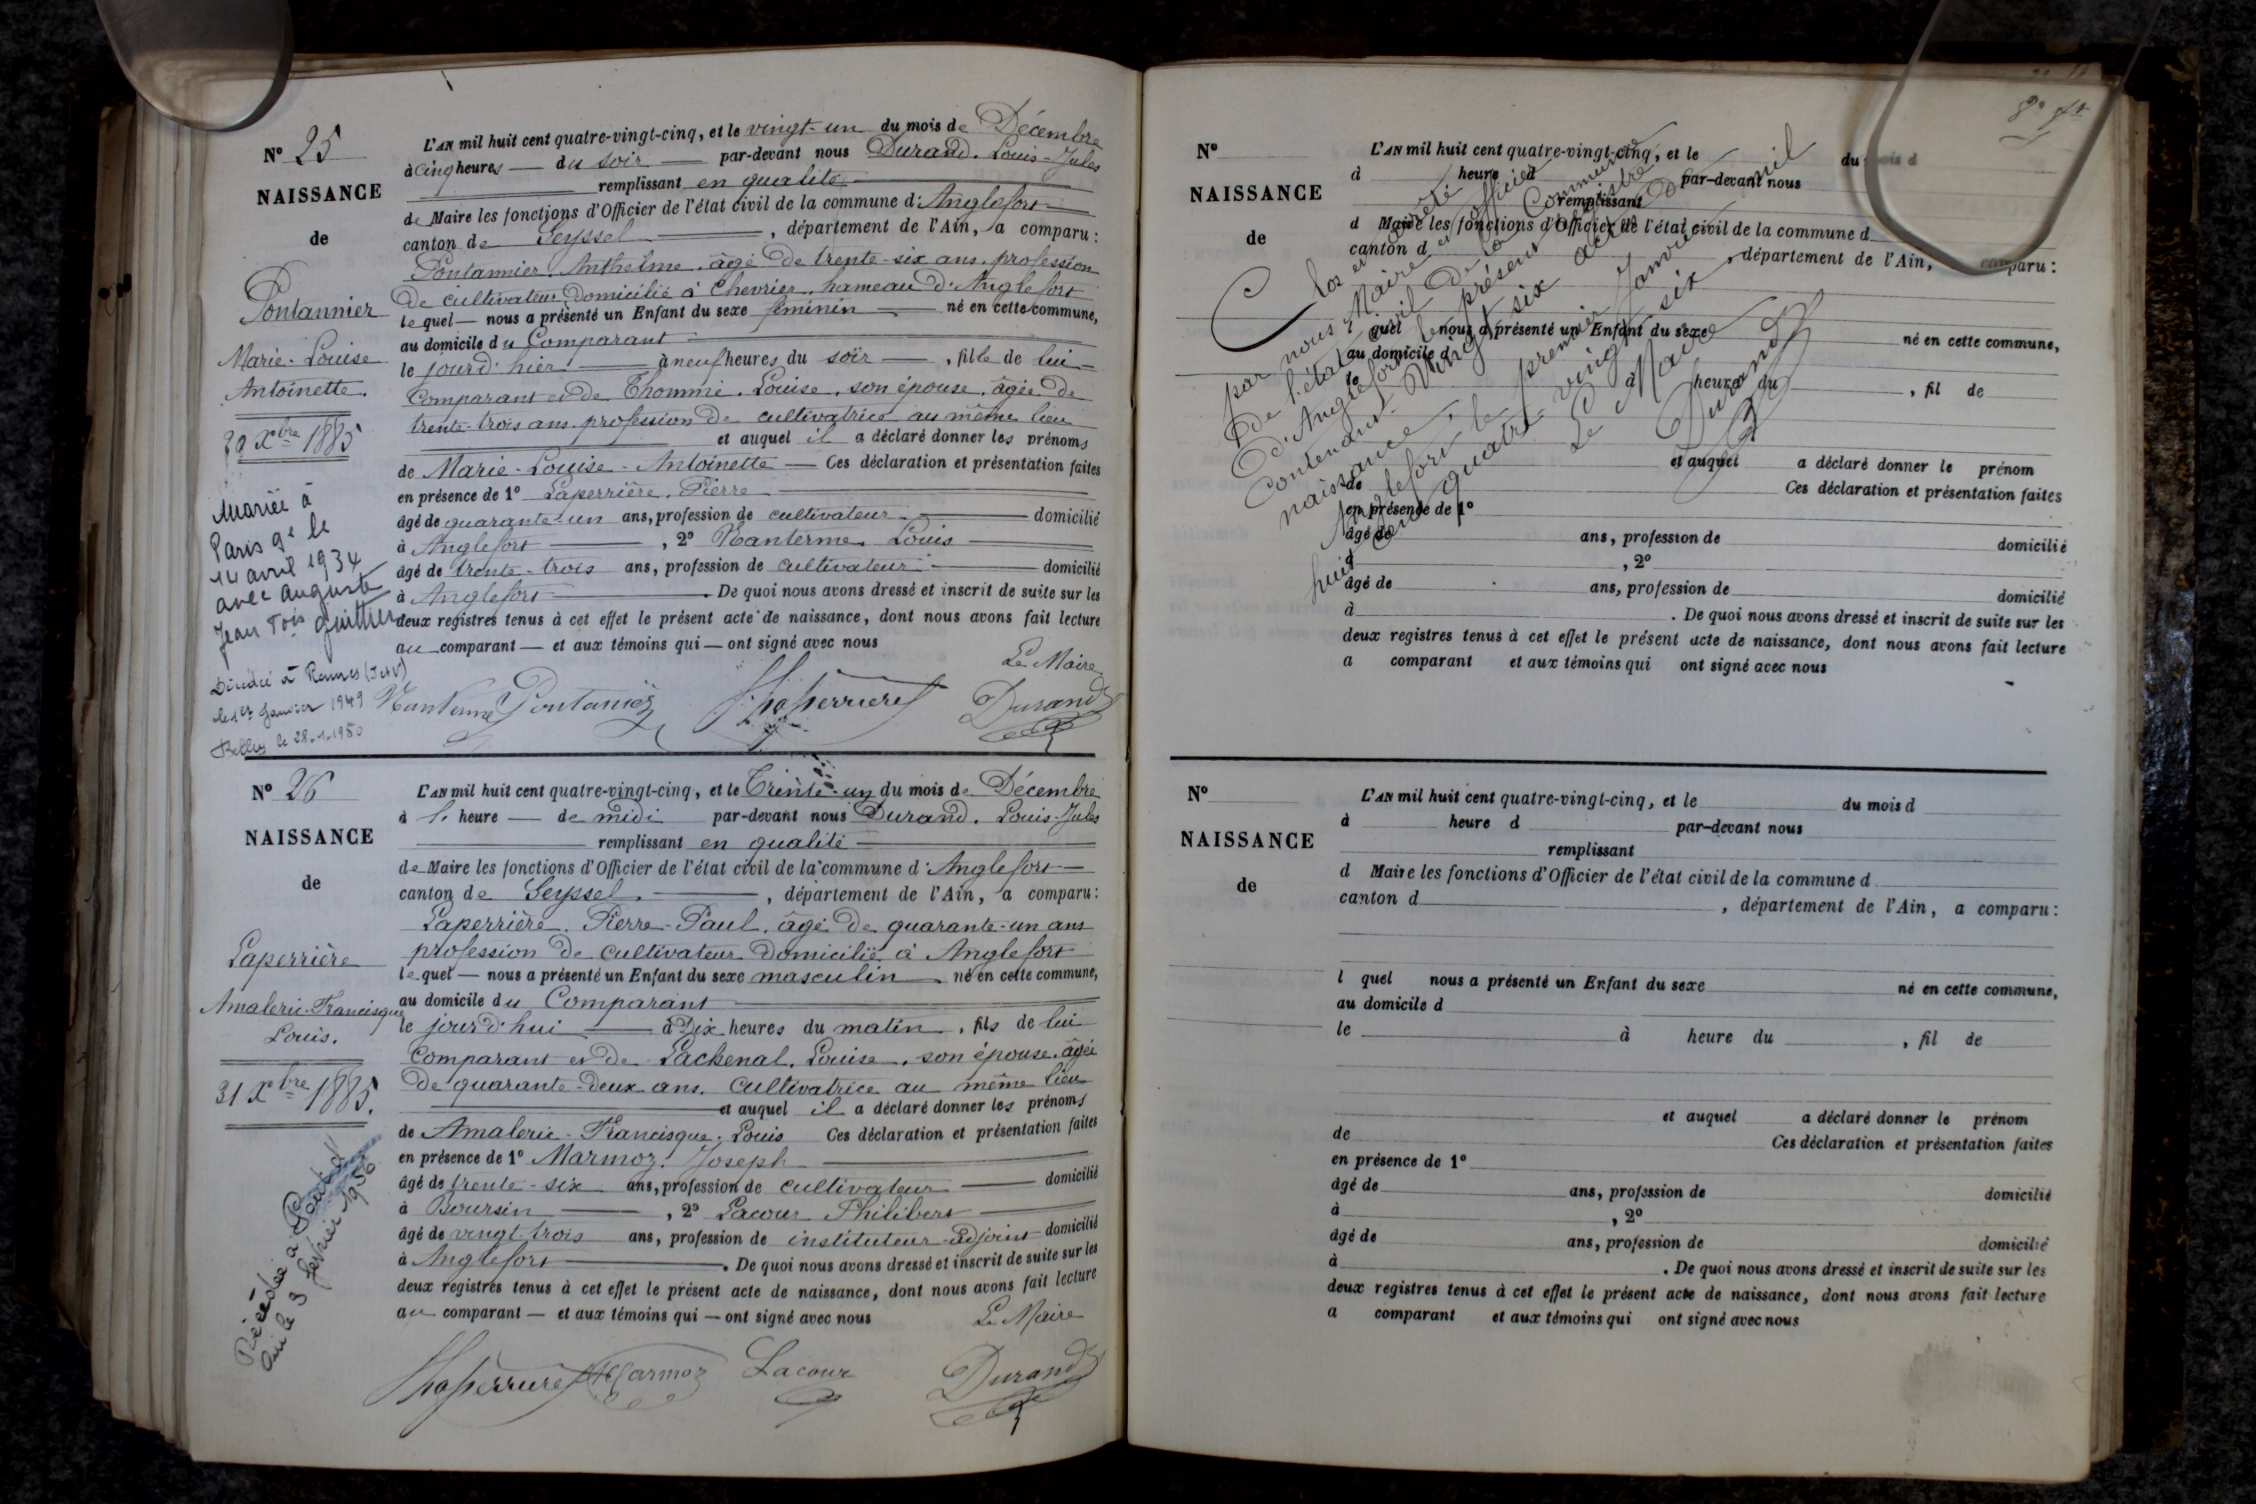 N° 25
NAISSANCE
de
Pontannier
Marie-Louise
Antoinette.
20 Xbre 1885
Mariée à
Paris 9e le
14 avril 1934
avec Auguste
Jean Fois Guittier
Décédée à Rennes (I et V)
le 1er Janvier 1949
Belley le 28.1.1950
L'AN mil huit cent quatre-vingt-cinq, et le vingt-un du mois de Décembre
à cinq heures — du soir — par-devant nous Durand. Louis-Jules
remplissant en qualité
de Maire les fonctions d'Officier de l'état civil de la commune d'Anglefort
canton de Seyssel —, département de l'Ain, a comparu :
Pontannier. Anthelme. âgé de trente-six ans. profession
de cultivateur. domicilié à Chevrier. hameau d'Anglefort
lequel — nous a présenté un Enfant du sexe féminin — né en cette commune,
au domicile du Comparant
le jour d'hier — à neuf heures du soir —, fille de lui
Comparant et de Thommé. Louise. son épouse. âgée de
trente-trois ans. profession de cultivatrice au même lieu
et auquel il a déclaré donner les prénoms
de Marie-Louise-Antoinette — Ces déclaration et présentation faites
en présence de 1° Laperrière. Pierre
âgé de quarante-un ans, profession de cultivateur — domicilié
à Anglefort —, 2° Nanterme Louis
âgé de trente-trois ans, profession de cultivateur — domicilié
à Anglefort —. De quoi nous avons dressé et inscrit de suite sur les
deux registres tenus à cet effet le présent acte de naissance, dont nous avons fait lecture
au comparant — et aux témoins qui — ont signé avec nous
Le Maire
Nanterme Pontanier Laperrière Durand
N° 26
NAISSANCE
de
Laperrière
Amaleric-Francisque
Louis.
31 Xbre 1885.
Décédé à
Ain le 3 février 1956
L'AN mil huit cent quatre-vingt-cinq, et le Trente-un du mois de Décembre
à 1. heure — de midi par-devant nous Durand. Louis-Jules
remplissant en qualité
de Maire les fonctions d'Officier de l'état civil de la commune d'Anglefort
canton de Seyssel —, département de l'Ain, a comparu :
Laperrière. Pierre-Paul. âgé de quarante-un ans
profession de cultivateur domicilié à Anglefort
lequel — nous a présenté un Enfant du sexe masculin né en cette commune,
au domicile du Comparant
le jour d'hui — à Dix heures du matin, fils de lui
Comparant et de Lachenal. Louise. son épouse. âgée
de quarante-deux ans. cultivatrice au même lieu
et auquel il a déclaré donner les prénoms
de Amaleric-Francisque. Louis Ces déclaration et présentation faites
en présence de 1° Marmoz. Joseph
âgé de trente-six ans, profession de cultivateur — domicilié
à Boursin —, 2° Lacour Philibert
âgé de vingt-trois ans, profession de instituteur-adjoint domicilié
à Anglefort —. De quoi nous avons dressé et inscrit de suite sur les
deux registres tenus à cet effet le présent acte de naissance, dont nous avons fait lecture
au comparant — et aux témoins qui — ont signé avec nous
Le Maire
Laperrière Marmoz Lacour Durand
N°
NAISSANCE
de
L'AN mil huit cent quatre-vingt-cinq, et le du mois d
à heure d par-devant nous
remplissant
d Maire les fonctions d'Officier de l'état civil de la commune d
canton d , département de l'Ain, a comparu :
l quel nous a présenté un Enfant du sexe né en cette commune,
au domicile d
le à heure du , fil de
et auquel a déclaré donner le prénom
de Ces déclaration et présentation faites
en présence de 1°
âgé de ans, profession de domicilié
à , 2°
âgé de ans, profession de domicilié
à . De quoi nous avons dressé et inscrit de suite sur les
deux registres tenus à cet effet le présent acte de naissance, dont nous avons fait lecture
a comparant et aux témoins qui ont signé avec nous
Clos et arrêté
par nous Maire et officier
de l'état civil de la Commune
d'Anglefort le présent registre
Contenant Vingt six actes de
naissance,
Anglefort le premier Janvier mil
huit cent quatre vingt six
Le Maire
Durand
N°
NAISSANCE
de
L'AN mil huit cent quatre-vingt-cinq, et le du mois d
à heure d par-devant nous
remplissant
d Maire les fonctions d'Officier de l'état civil de la commune d
canton d , département de l'Ain, a comparu :
l quel nous a présenté un Enfant du sexe né en cette commune,
au domicile d
le à heure du , fil de
et auquel a déclaré donner le prénom
de Ces déclaration et présentation faites
en présence de 1°
âgé de ans, profession de domicilié
à , 2°
âgé de ans, profession de domicilié
à . De quoi nous avons dressé et inscrit de suite sur les
deux registres tenus à cet effet le présent acte de naissance, dont nous avons fait lecture
a comparant et aux témoins qui ont signé avec nous